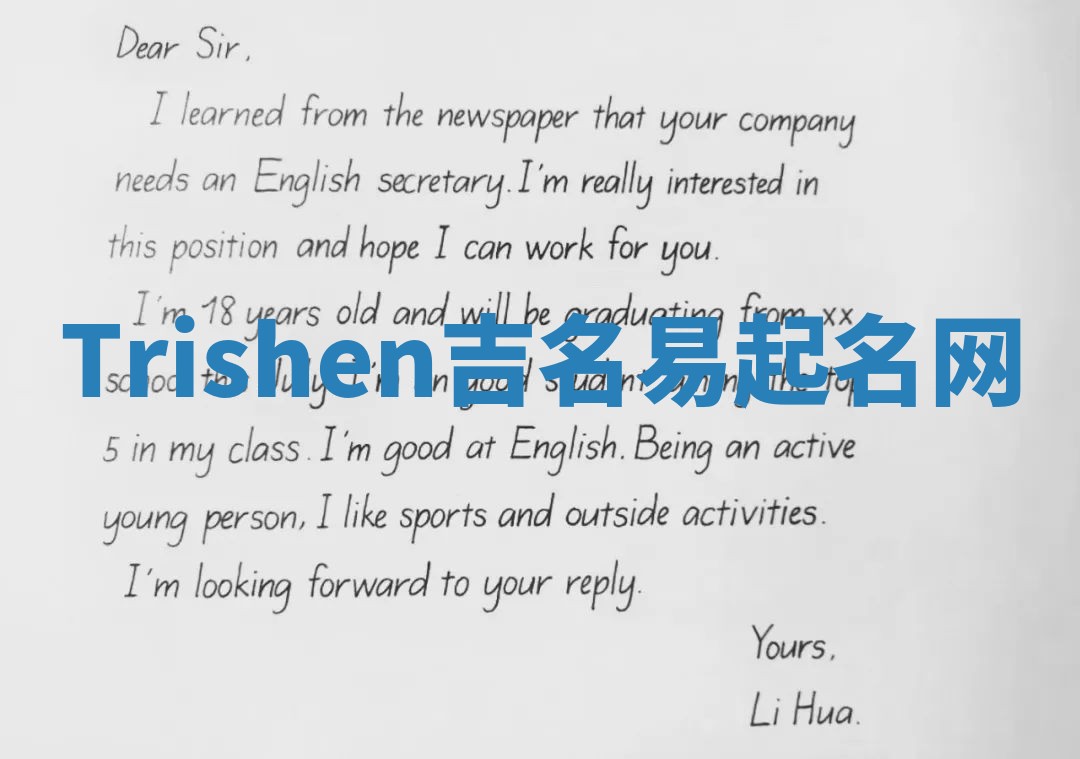 Dear Sir,
I learned from the newspaper that your company
needs an English secretary. I'm really interested in
this position and hope I can work for you.
I'm 18 years old and will be graduating from xx
Trishen吉名易起名网
school this July. I'm good student the top
5 in my class. I'm good at English. Being an active
young person, I like sports and outside activities.
I'm looking forward to your reply.
Yours,
Li Hua.